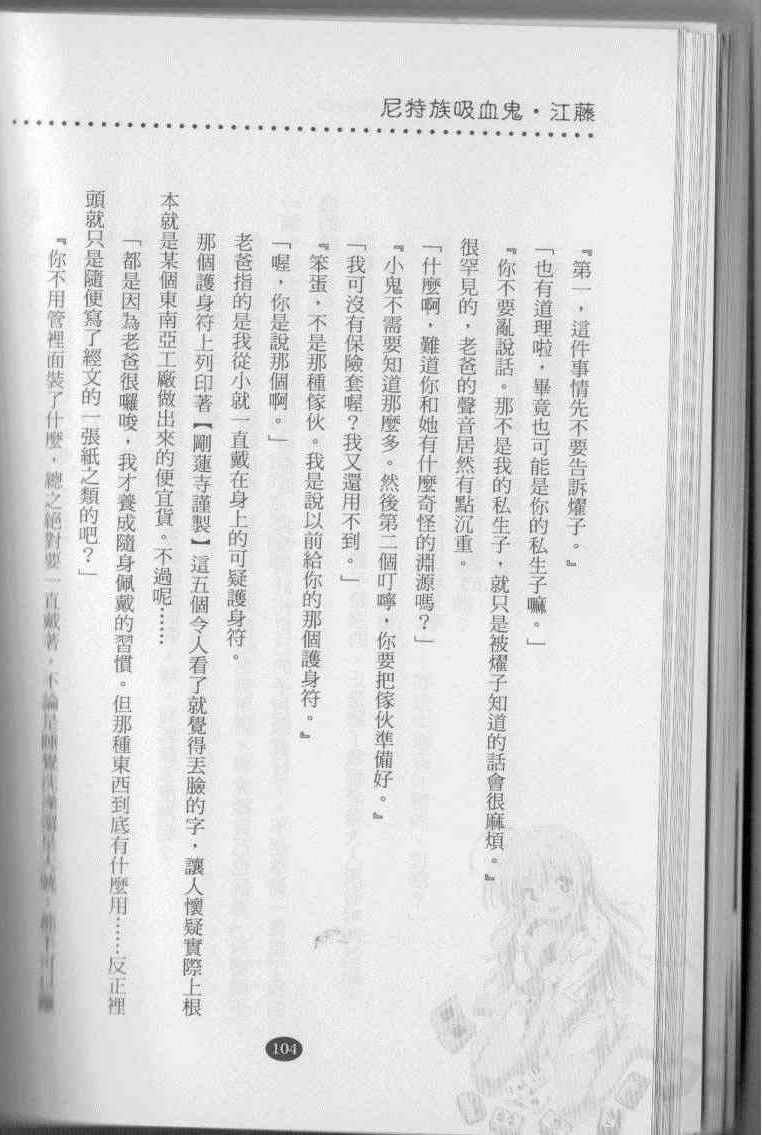 尼特族吸血鬼・江藤
『第一，這件事情先不要告訴燿子。』
「也有道理啦，畢竟也可能是你的私生子嘛。」
『你不要亂說話。那不是我的私生子，就只是被燿子知道的話會很麻煩。』
很罕見的，老爸的聲音居然有點沉重。
「什麼啊，難道你和她有什麼奇怪的淵源嗎？」
『小鬼不需要知道那麼多。然後第二個叮嚀，你要把傢伙準備好。』
「我可沒有保險套喔？我又還用不到。」
『笨蛋，不是那種傢伙。我是說以前給你的那個護身符。』
「喔，你是說那個啊。」
老爸指的是我從小就一直戴在身上的可疑護身符。
那個護身符上列印著【剛蓮寺謹製】這五個令人看了就覺得丟臉的字，讓人懷疑實際上根
本就是某個東南亞工廠做出來的便宜貨。不過呢……
「都是因為老爸很囉唆，我才養成隨身佩戴的習慣。但那種東西到底有什麼用……反正裡
頭就只是隨便寫了經文的一張紙之類的吧？」
『你不用管裡面裝了什麼，總之絕對要一直戴著，不論是睡覺
104